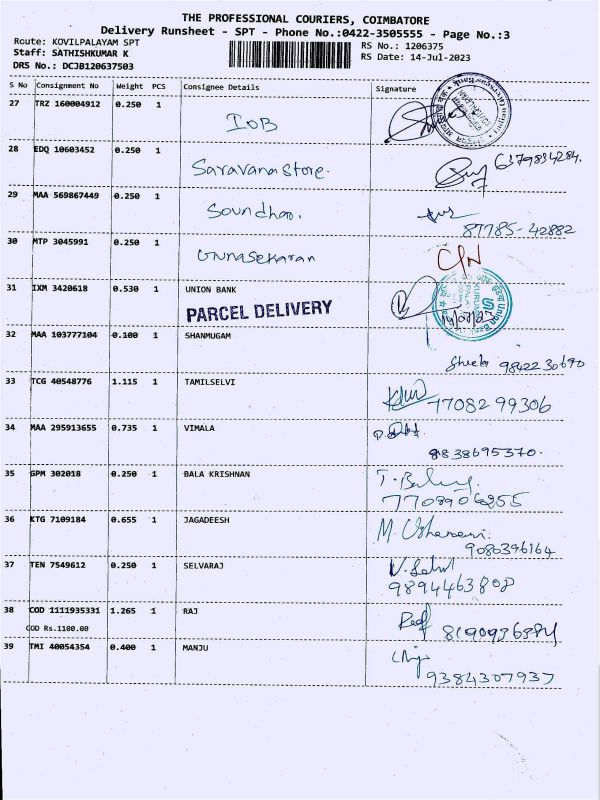 THE PROFESSIONAL COURIERS, COIMBATORE
Delivery Runsheet - SPT - Phone No.:0422-3505555 - Page No.:3
Route: KOVILPALAYAM SPT
Staff: SATHISHKUMAR K
DRS No.: DCJB120637503
RS No.: 1206375
RS Date: 14-Jul-2023
S No Consignment No Weight PCS Consignee Details Signature
27 TRZ 160004912 0.250 1 IOB
28 EDQ 10603452 0.250 1 Saravana Store.
29 MAA 569867449 0.250 1 Soundhar. 87785-42882
30 MTP 3045991 0.250 1 Gunasekaran C/N
31 IXM 3420618 0.530 1 UNION BANK
PARCEL DELIVERY
32 MAA 103777104 0.100 1 SHANMUGAM
33 TCG 40548776 1.115 1 TAMILSELVI 77082 99306
34 MAA 295913655 0.735 1 VIMALA 9838695370.
35 GPM 302018 0.250 1 BALA KRISHNAN
36 KTG 7109184 0.655 1 JAGADEESH 9080396164
37 TEN 7549612 0.250 1 SELVARAJ 9894463808
38 COD 1111935331 1.265 1 RAJ
COD Rs.1100.00
39 TMI 40054354 0.400 1 MANJU 9384307937